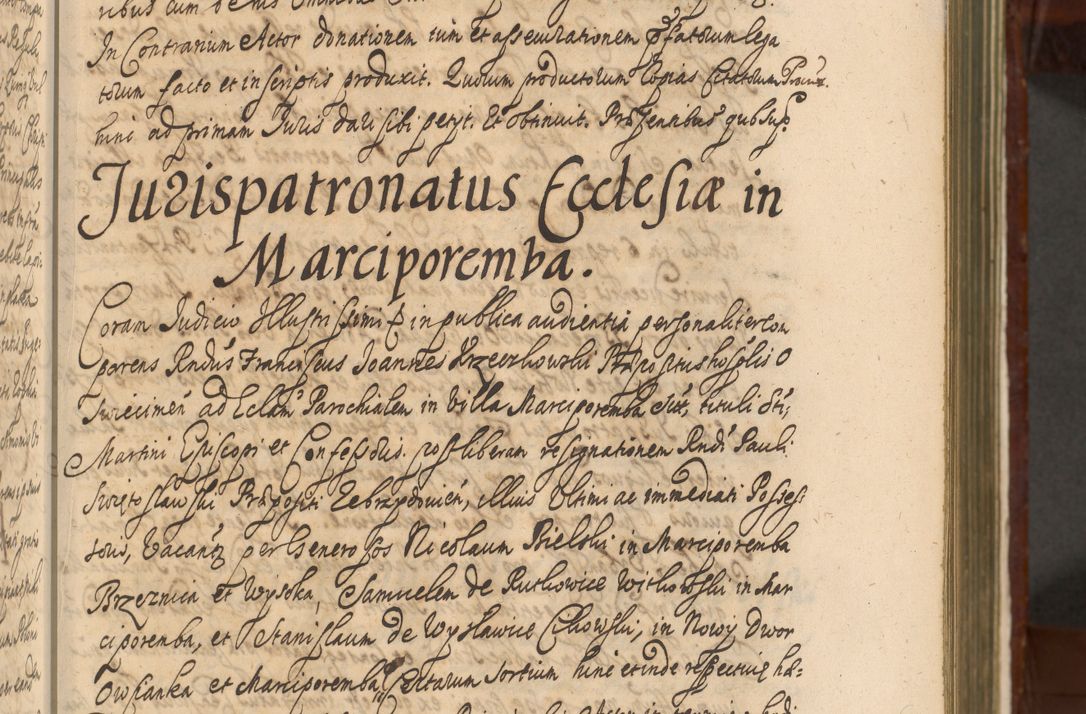 In Contrarium Actor donationem tum et assecurationem pfatorum lega
torum facto et in scriptis produxit. Quorum productorum Copias Citatorum Procur
hinc ad primam Juris dari sibi petyt. Et obtinuit. Prasentibus qub Sup
Jurispatronatus Ecclesiæ in
Marciporemba.
Coram Judicio Illustrissimi &c in publica audientia personaliter com
parens Rndus Franciscus Joannes Krzeczkowski Præpositus hosplis O
swiecimen ad Eclam Parochialem in Villa Marciporemba sub tituli Sti
Martini Episcopi et Confessoris. post liberam resignationem Rndi Pauli
Swiętoslawski Præpositi Zebrzydovicen, illius Ultimi ac immediati Possesj
soris, Vacantem per Generosos Nicolaum Bielski in Marciporemba
Brzeznica et Wysoka, Samuelem de Rutkowice Witkowski in Mar
ciporemba, et Stanislaum de Wyslawice Chowski, in Nowy Dwor
Towsianka et Marciporemba Sortium hinc etinde respective hæ=